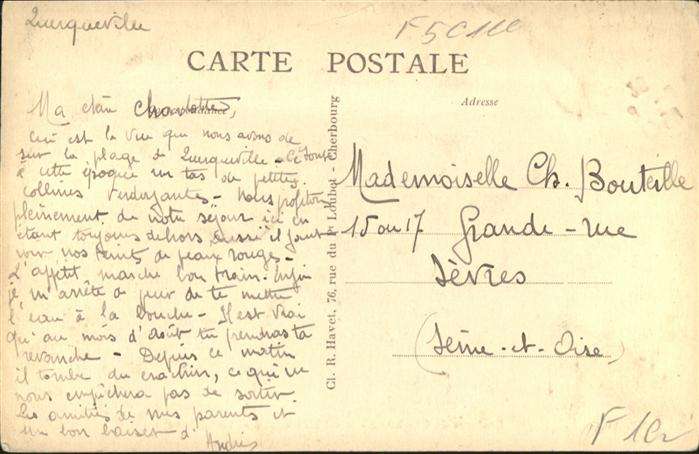 Querqueville
F5C110
CARTE POSTALE
Correspondance
Adresse
Ma chère Charlotte,
Ceci est la vue que nous avons de
sur la plage de Querqueville - Ce sont
à cette époque un tas de petites
collines verdoyantes - Nous profitons
pleinement de notre séjour ici en
étant toujours dehors, aussi il faut
voir nos teints de peaux rouges -
L'appétit marche bon train - Enfin
je m'arrête de peur de te mettre
l'eau à la bouche - Il est vrai
qu'au mois d'août tu prendras ta
revanche - Depuis ce matin
il tombe du crachin, ce qui ne
nous empêchera pas de sortir.
Les amitiés de mes parents et
un bon baiser d'
André
Cl. R. Havet, 76, rue du Pt Loubet - Cherbourg
Mademoiselle Ch. Bouteille
15 ou 17 Grande-rue
Sèvres
(Seine-et-Oise)